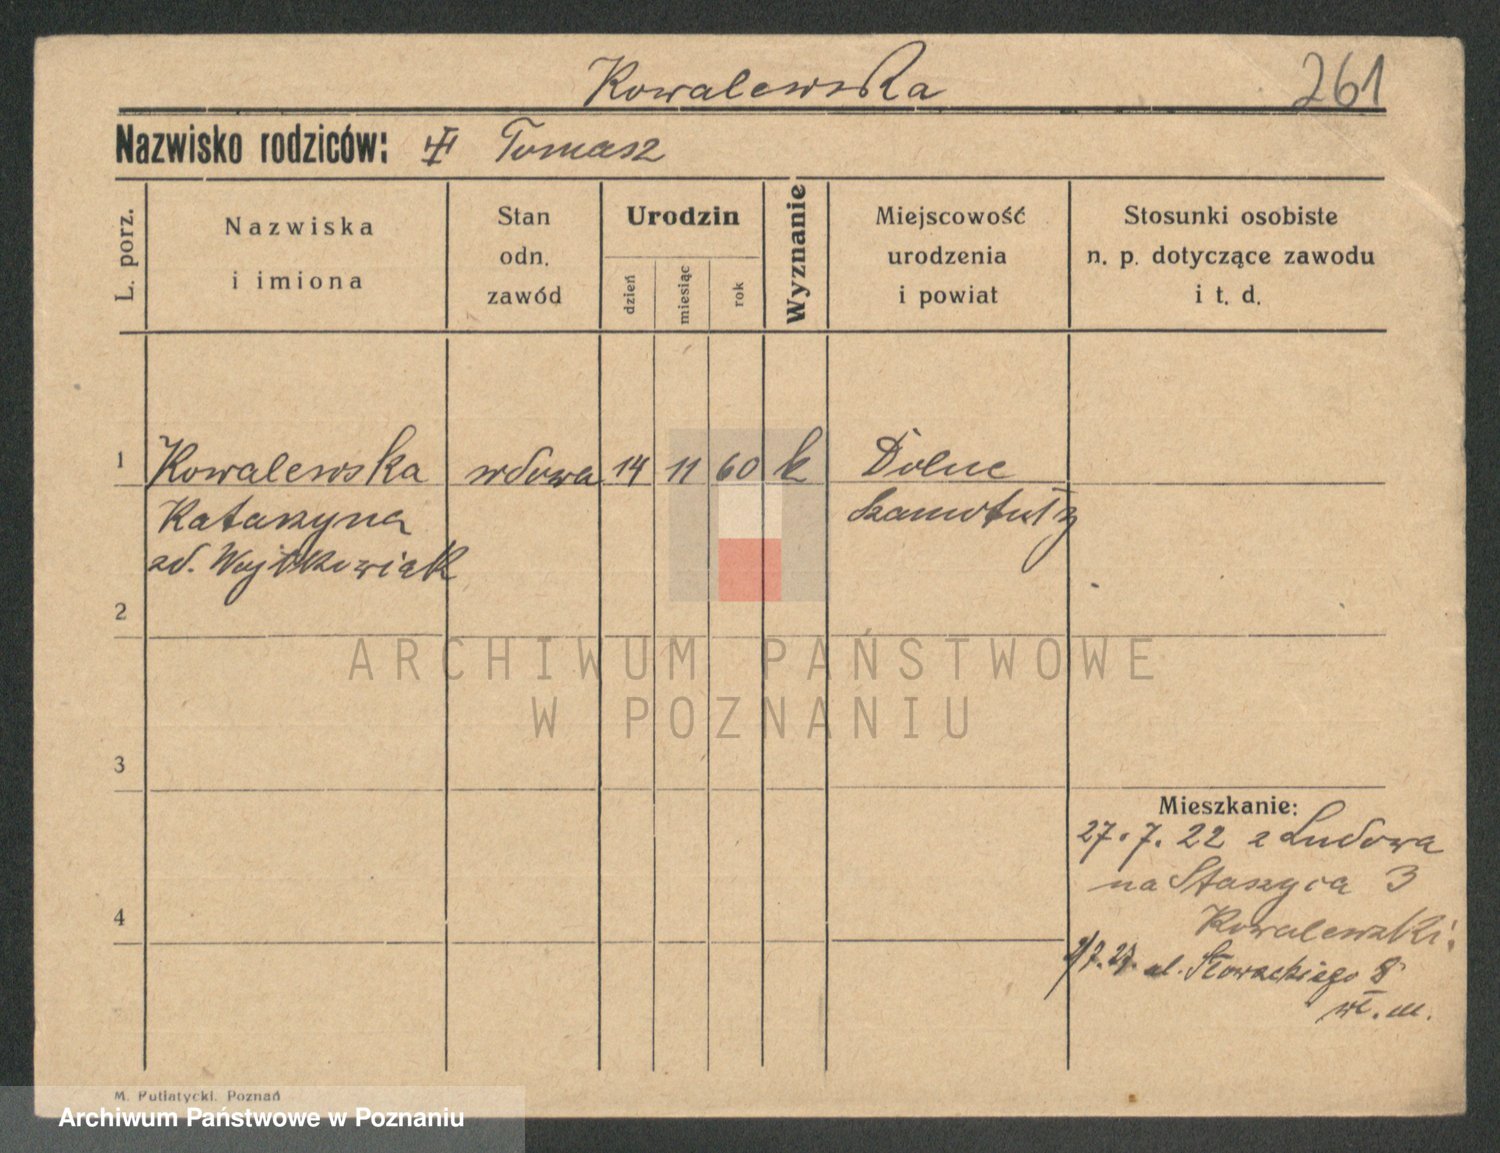 Kowalewska
261
Nazwisko rodziców: Tomasz
L. porz.
Nazwiska
i imiona
Stan
odn.
zawód
Urodzin
dzień
miesiąc
rok
Wyznanie
Miejscowość
urodzenia
i powiat
Stosunki osobiste
n. p. dotyczące zawodu
i t. d.
1 Kowalewska wdowa 14 11 60 k Dolne
Katarzyna
zd. Wojtkowiak
2
3
4
Mieszkanie:
27.7.22 z Ludowa
na Staszyca 3
Kowalewski.
ul. Słowackiego 8
wł. m.
M. Putiatycki. Poznań
ARCHIWUM PAŃSTWOWE
W POZNANIU
Archiwum Państwowe w Poznaniu